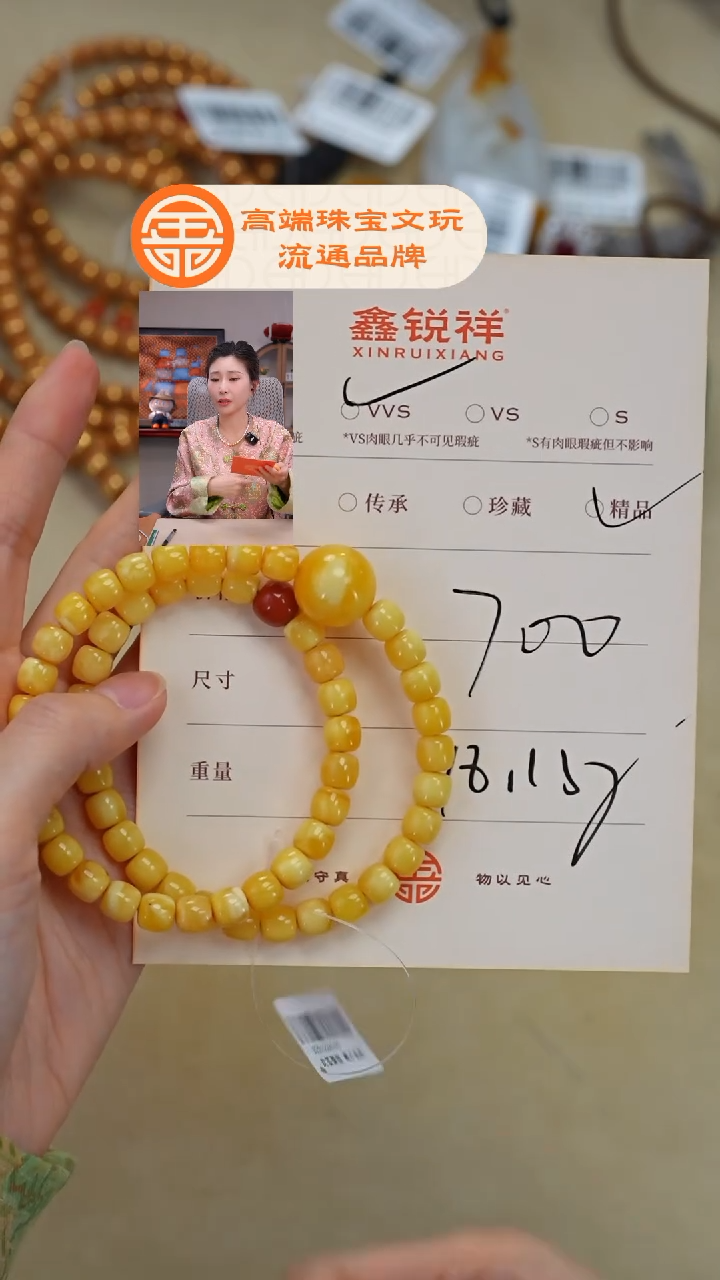 高端珠宝文玩
流通品牌
鑫锐祥
XINRUIXIANG
VVS VS S
*VS肉眼几乎不可见瑕疵 *S有肉眼瑕疵但不影响
传承 珍藏 精品
700
尺寸
重量 18.15g
守真 物以见心